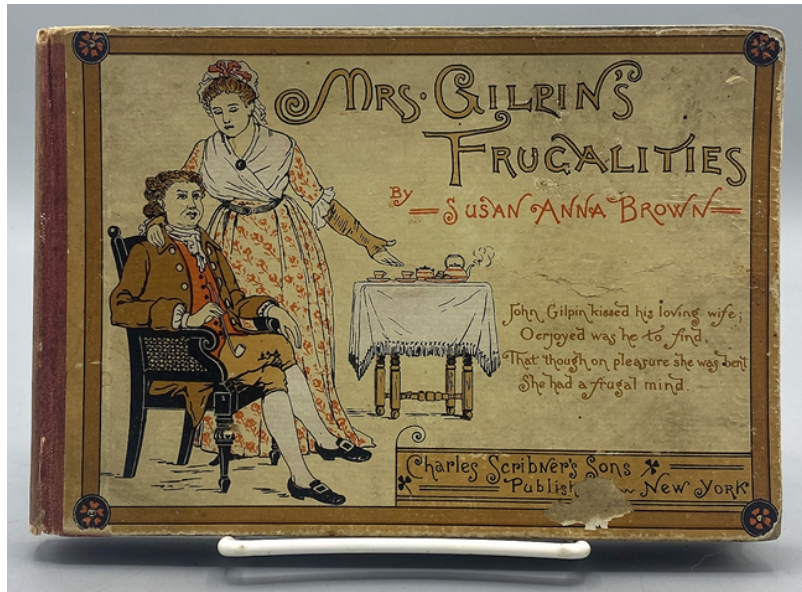 MRS. GILPIN'S
FRUGALITIES
BY SUSAN ANNA BROWN
John Gilpin kissed his loving wife;
Oerjoyed was he to find,
That though on pleasure she was bent
She had a frugal mind.
Charles Scribner's Sons
New York